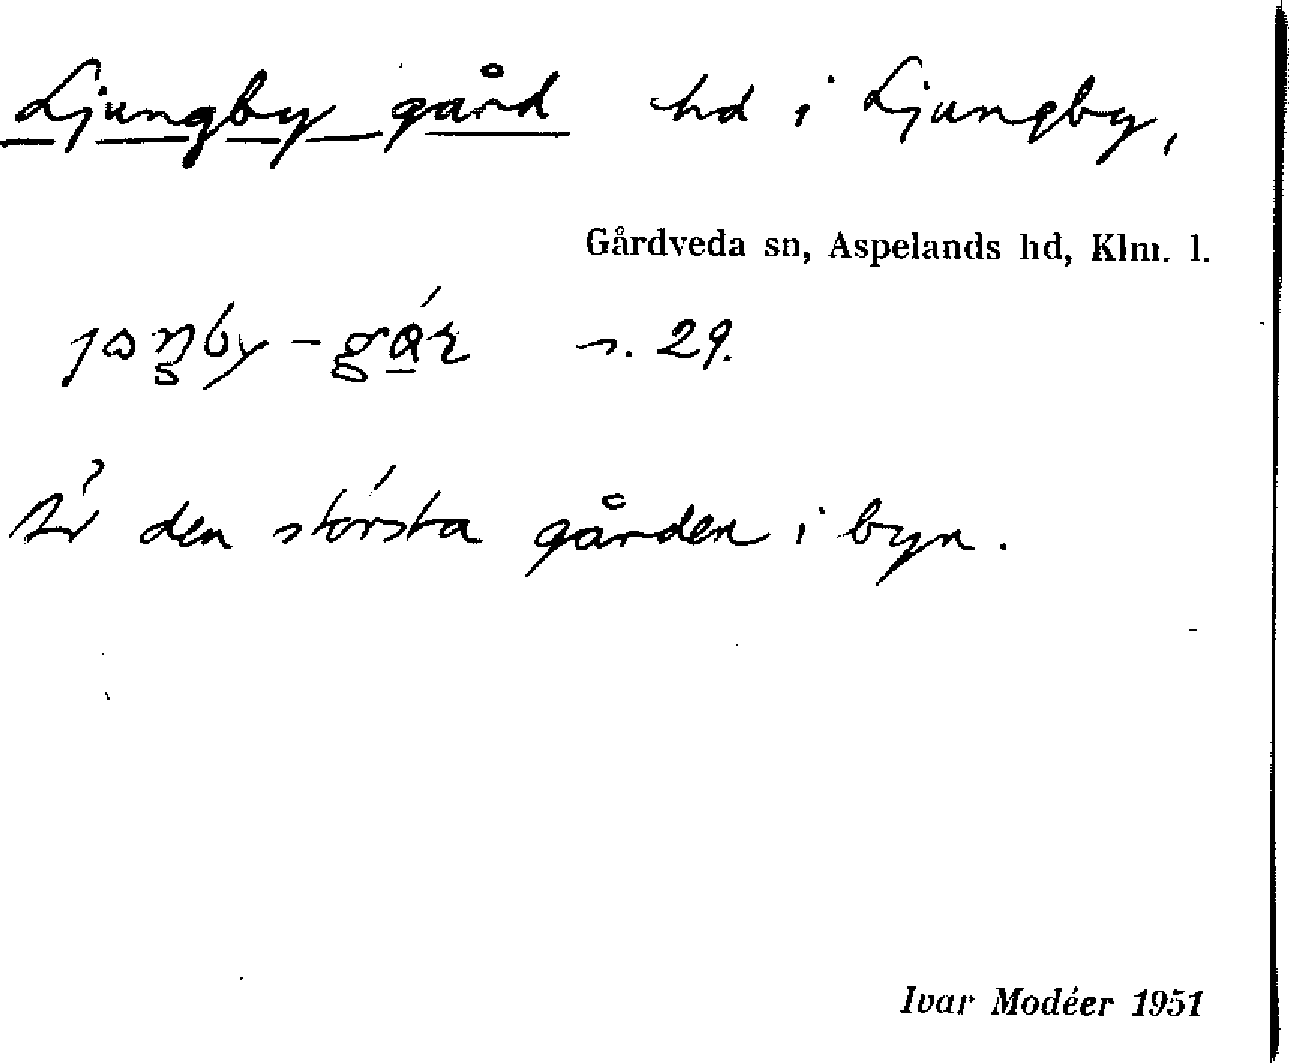 Ljungby gård hd i Ljungby,
Gårdveda sn, Aspelands hd, Klm. l.
s. 29.
Är den största gården i byn.
Ivar Modéer 1951